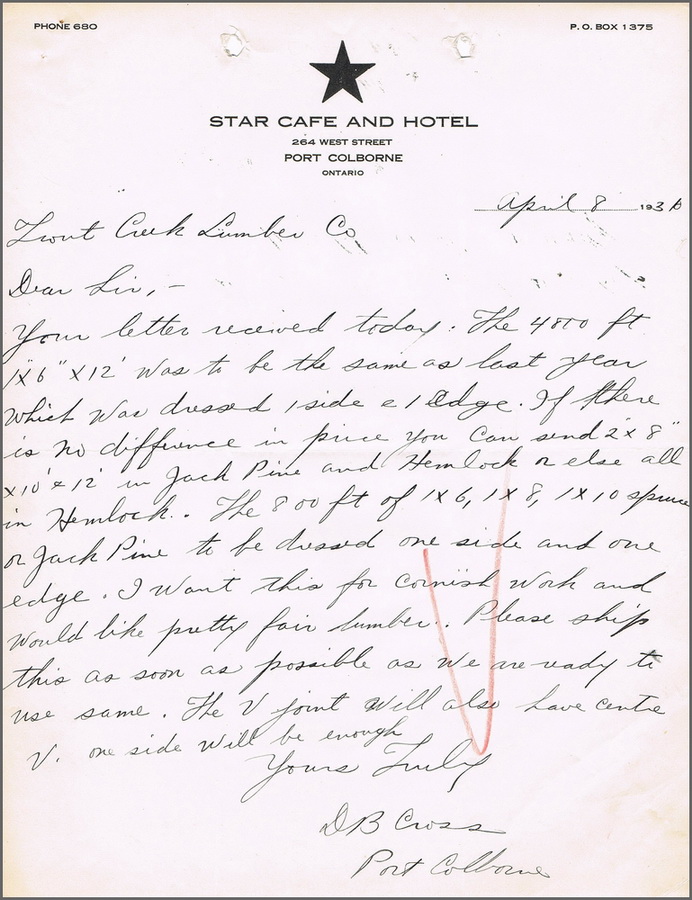 PHONE 680
P. O. BOX 1375
STAR CAFE AND HOTEL
264 WEST STREET
PORT COLBORNE
ONTARIO
April 8 193
Trout Creek Lumber Co
Dear Sir, -
Your letter received today. The 4800 ft
1x6" x 12' was to be the same as last year
which was dressed 1 side & 1 Edge. If there
is no difference in price you can send 2x8"
x10' & 12' in Jack Pine and Hemlock or else all
in Hemlock. The 800 ft of 1x6, 1x8, 1x10 spruce
or Jack Pine to be dressed one side and one
edge. I want this for cornish work and
would like pretty fair lumber. Please ship
this as soon as possible as we are ready to
use same. The V joint will also have centre
V. one side will be enough
Yours Truly
DB Cross
Port Colborne